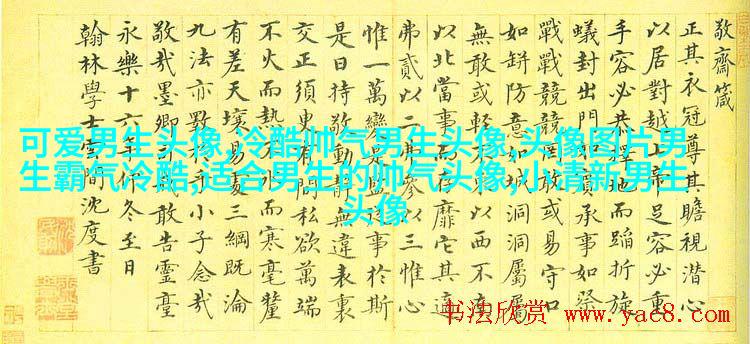 敬齋箴
正其衣冠尊其瞻視潛心
以居對越上帝足容必重
手容必恭擇地而蹈折旋
蟻封出門如賓承事如祭
戰戰兢兢罔敢或易守口
如缾防意如城洞洞屬屬
無敢或輕不以西不
以北當事而存靡它其適
弗貳以二弗參以三惟心
惟一萬變是監事於斯
是曰持敬動靜無違表裏
交正須臾有間私欲萬端
不火而熱不而寒毫釐
有差天壤易處三綱既淪
九法亦斁於乎小子念哉
敬哉墨卿司敢告靈臺
永樂十六年仲冬至日
翰林學士雲間沈度書
可爱男生头像,冷酷帅气男生头像,头像图片男
生霸气冷酷,适合男生的帅气头像,小清新男生
头像
书法欣赏 www.yac8.com